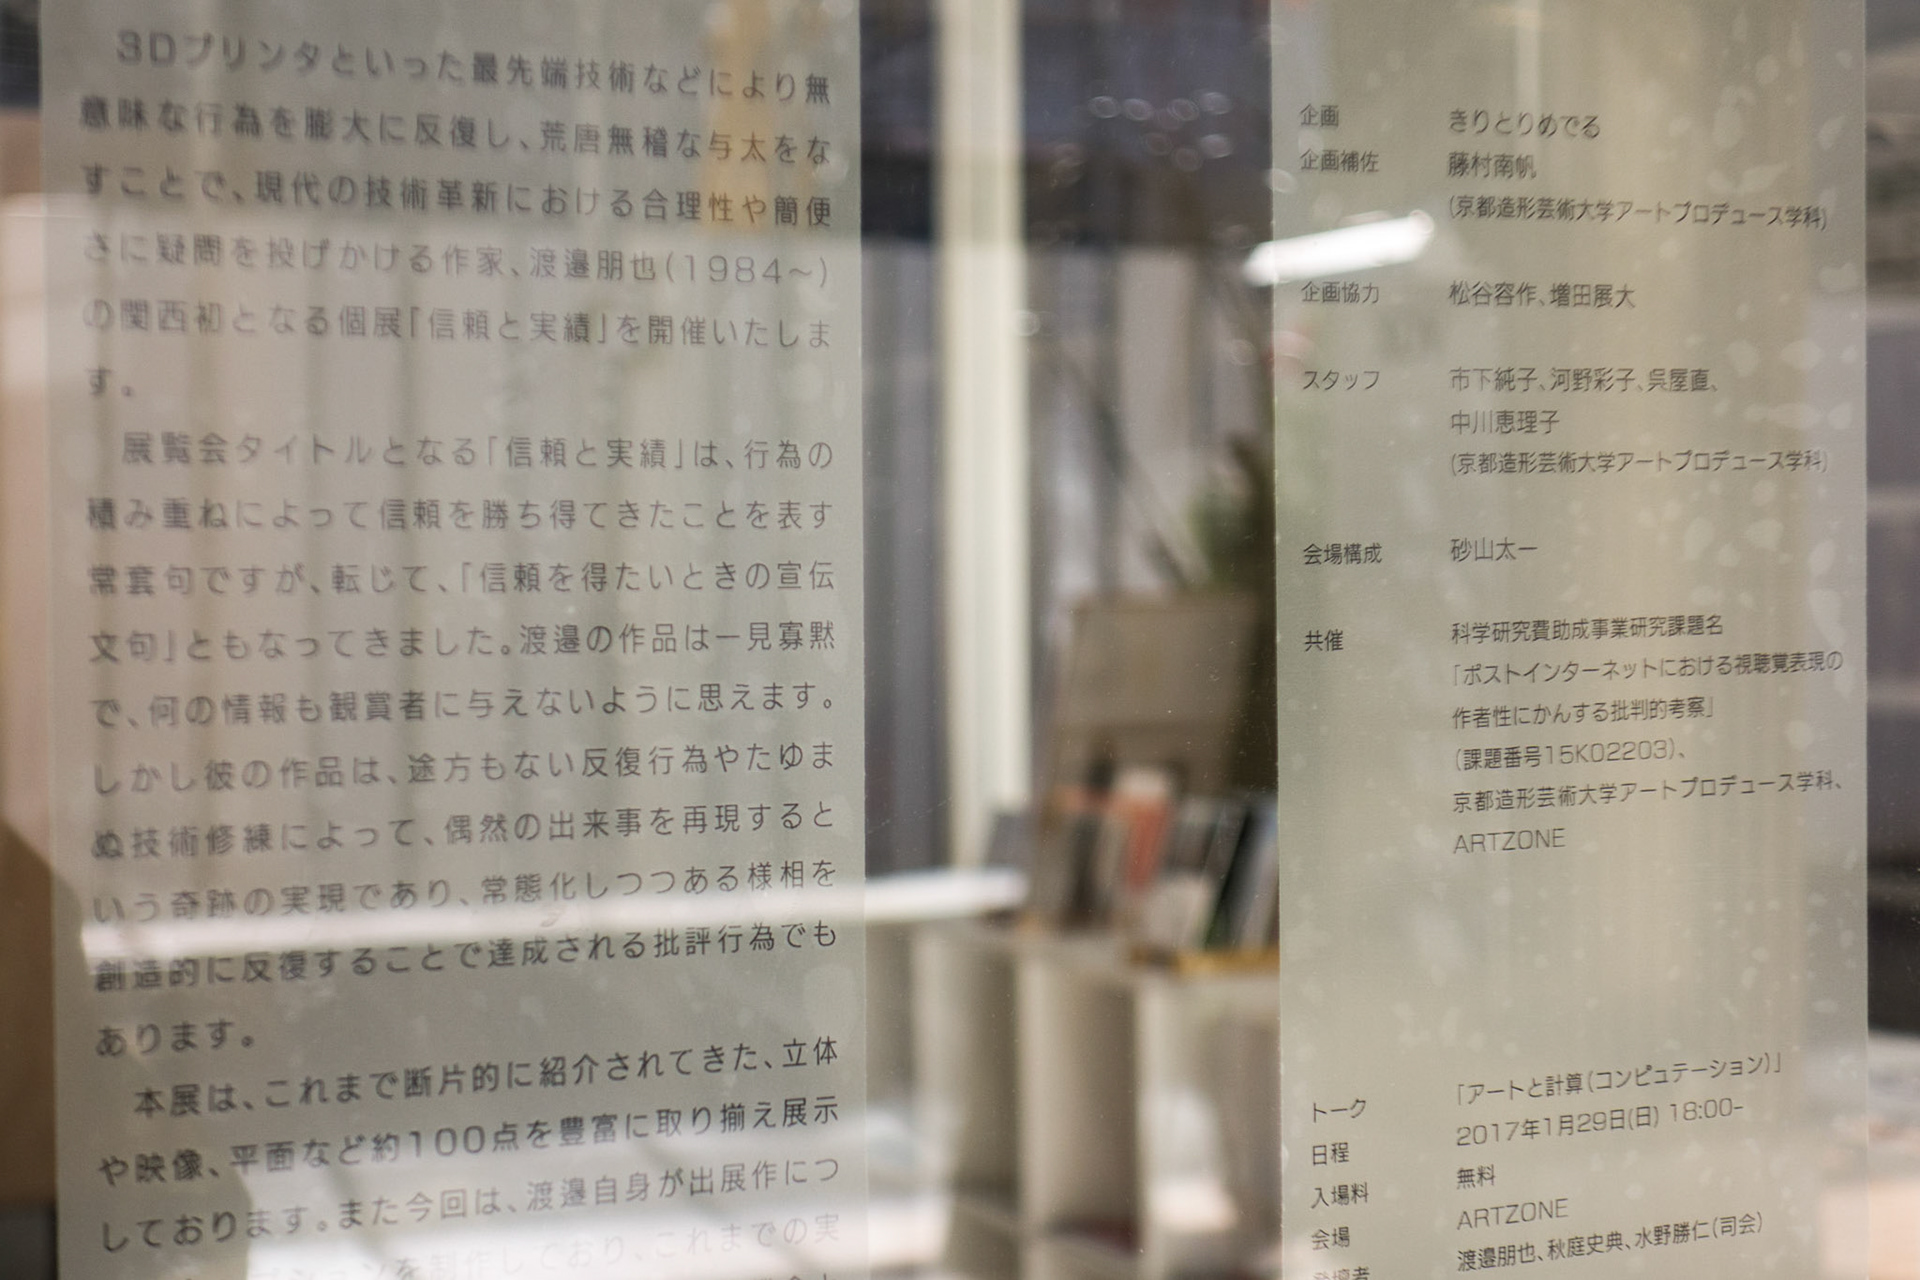 3Dプリンタといった最先端技術などにより無
意味な行為を膨大に反復し、荒唐無稽な与太をな
すことで、現代の技術革新における合理性や簡便
さに疑問を投げかける作家、渡邉朋也(1984〜)
の関西初となる個展「信頼と実績」を開催いたしま
す。
展覧会タイトルとなる「信頼と実績」は、行為の
積み重ねによって信頼を勝ち得てきたことを表す
常套句ですが、転じて、「信頼を得たいときの宣伝
文句」ともなってきました。渡邉の作品は一見寡黙
で、何の情報も観賞者に与えないように思えます。
しかし彼の作品は、途方もない反復行為やたゆま
ぬ技術修練によって、偶然の出来事を再現すると
いう奇跡の実現であり、常態化しつつある様相を
創造的に反復することで達成される批評行為でも
あります。
本展は、これまで断片的に紹介されてきた、立体
や映像、平面など約100点を豊富に取り揃え展示
しております。また今回は、渡邉自身が出展作につ
ションを制作しており、これまでの実
企画 きりとりめでる
企画補佐 藤村南帆
(京都造形芸術大学アートプロデュース学科)
企画協力 松谷容作、増田展大
スタッフ 市下純子、河野彩子、呉屋直、
中川恵理子
(京都造形芸術大学アートプロデュース学科)
会場構成 砂山太一
共催 科学研究費助成事業研究課題名
「ポストインターネットにおける視聴覚表現の
作者性にかんする批判的考察」
(課題番号15K02203)、
京都造形芸術大学アートプロデュース学科、
ARTZONE
トーク 「アートと計算(コンピュテーション)」
日程 2017年1月29日(日) 18:00-
入場料 無料
会場 ARTZONE
登壇者 渡邉朋也、秋庭史典、水野勝仁(司会)